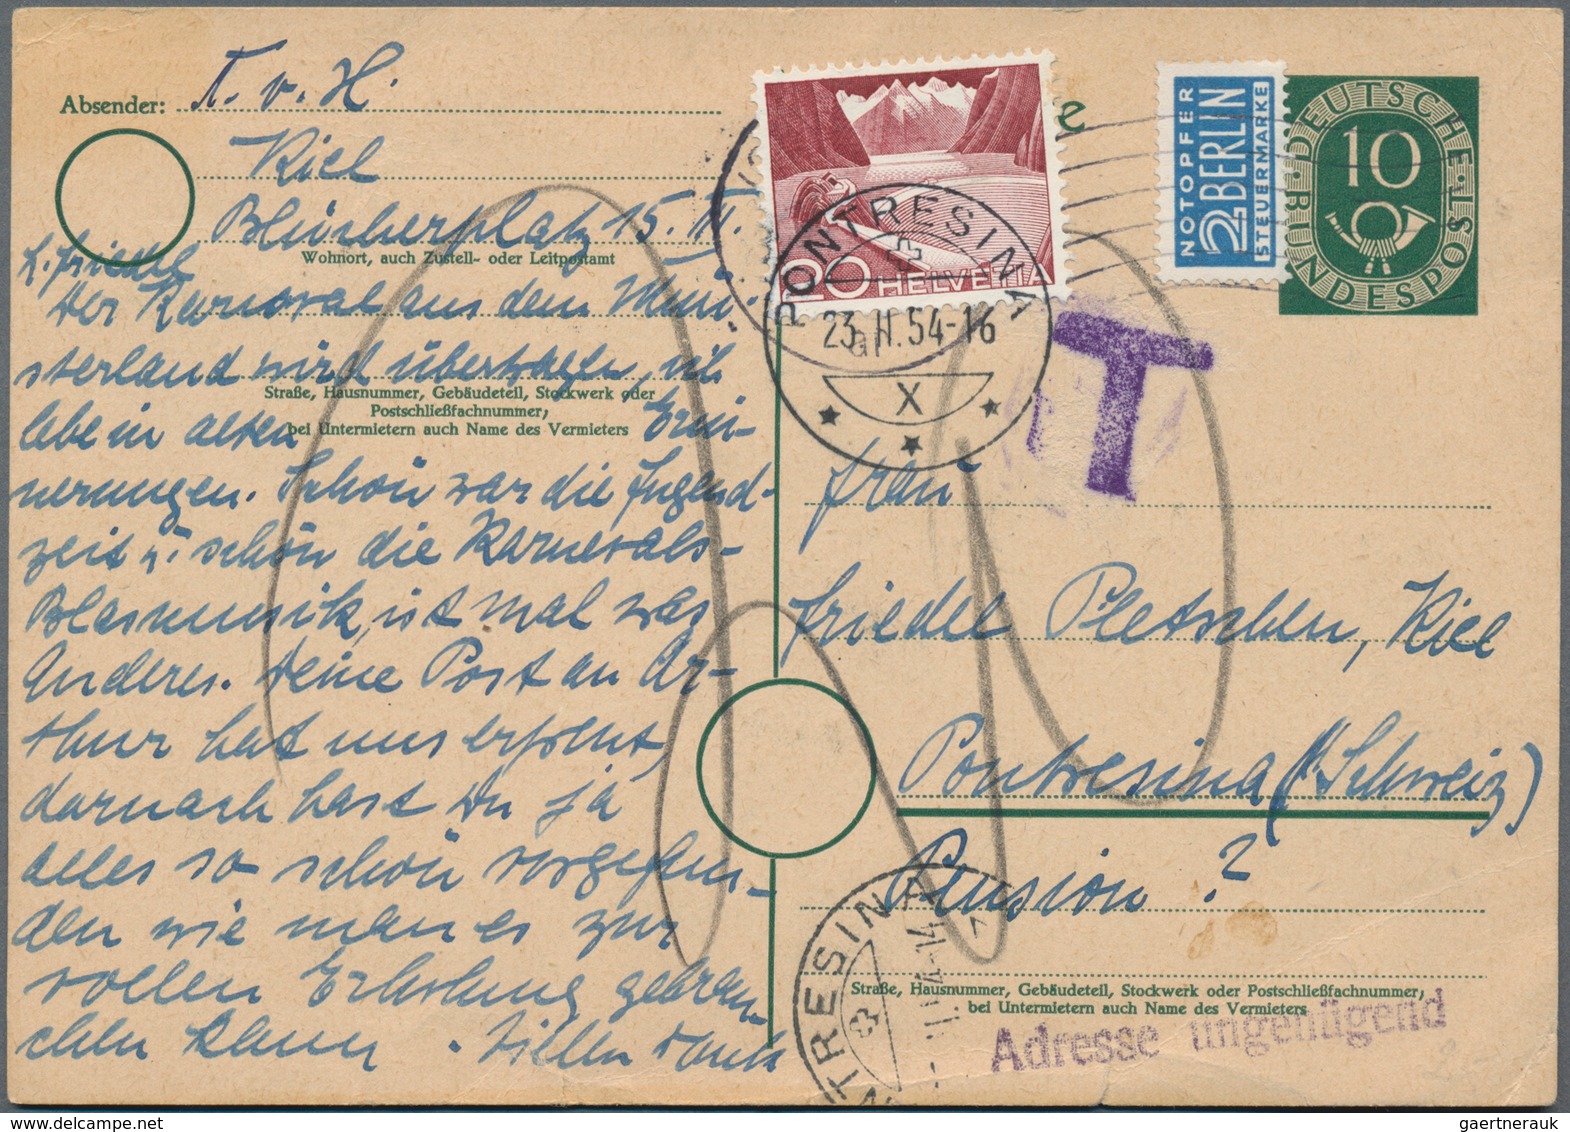 Absender: T. v. H.
Kiel
Blücherplatz 15. II.
Wohnort, auch Zustell- oder Leitpostamt
L. Friedel
Der Karneval aus dem Mün-
sterland wird übertragen, ich
Straße, Hausnummer, Gebäudeteil, Stockwerk oder
Postschließfachnummer,
bei Untermietern auch Name des Vermieters
lebe in alten Erin-
nerungen. Schön war die Jugend-
zeit u. schön die Karnevals-
Blasmusik, ist mal was
Anderes. Deine Post an Ar-
thur hat uns erfreut,
darnach hast Du ja
alles so schön vorgefun-
den wie man es zur
vollen Erholung gebrau-
chen kann. Vielen Dank
HELVETIA
20
PONTRESINA
23. II. 54-16
X
T
NOTOPFER
2 BERLIN
STEUERMARKE
DEUTSCHE
BUNDESPOST
10
Frau
Friedel Pletschen, Kiel
Pontresina (Schweiz)
Pension ?
TRESINA
Straße, Hausnummer, Gebäudeteil, Stockwerk oder Postschließfachnummer,
bei Untermietern auch Name des Vermieters
Adresse ungenügend
gaertnerauk